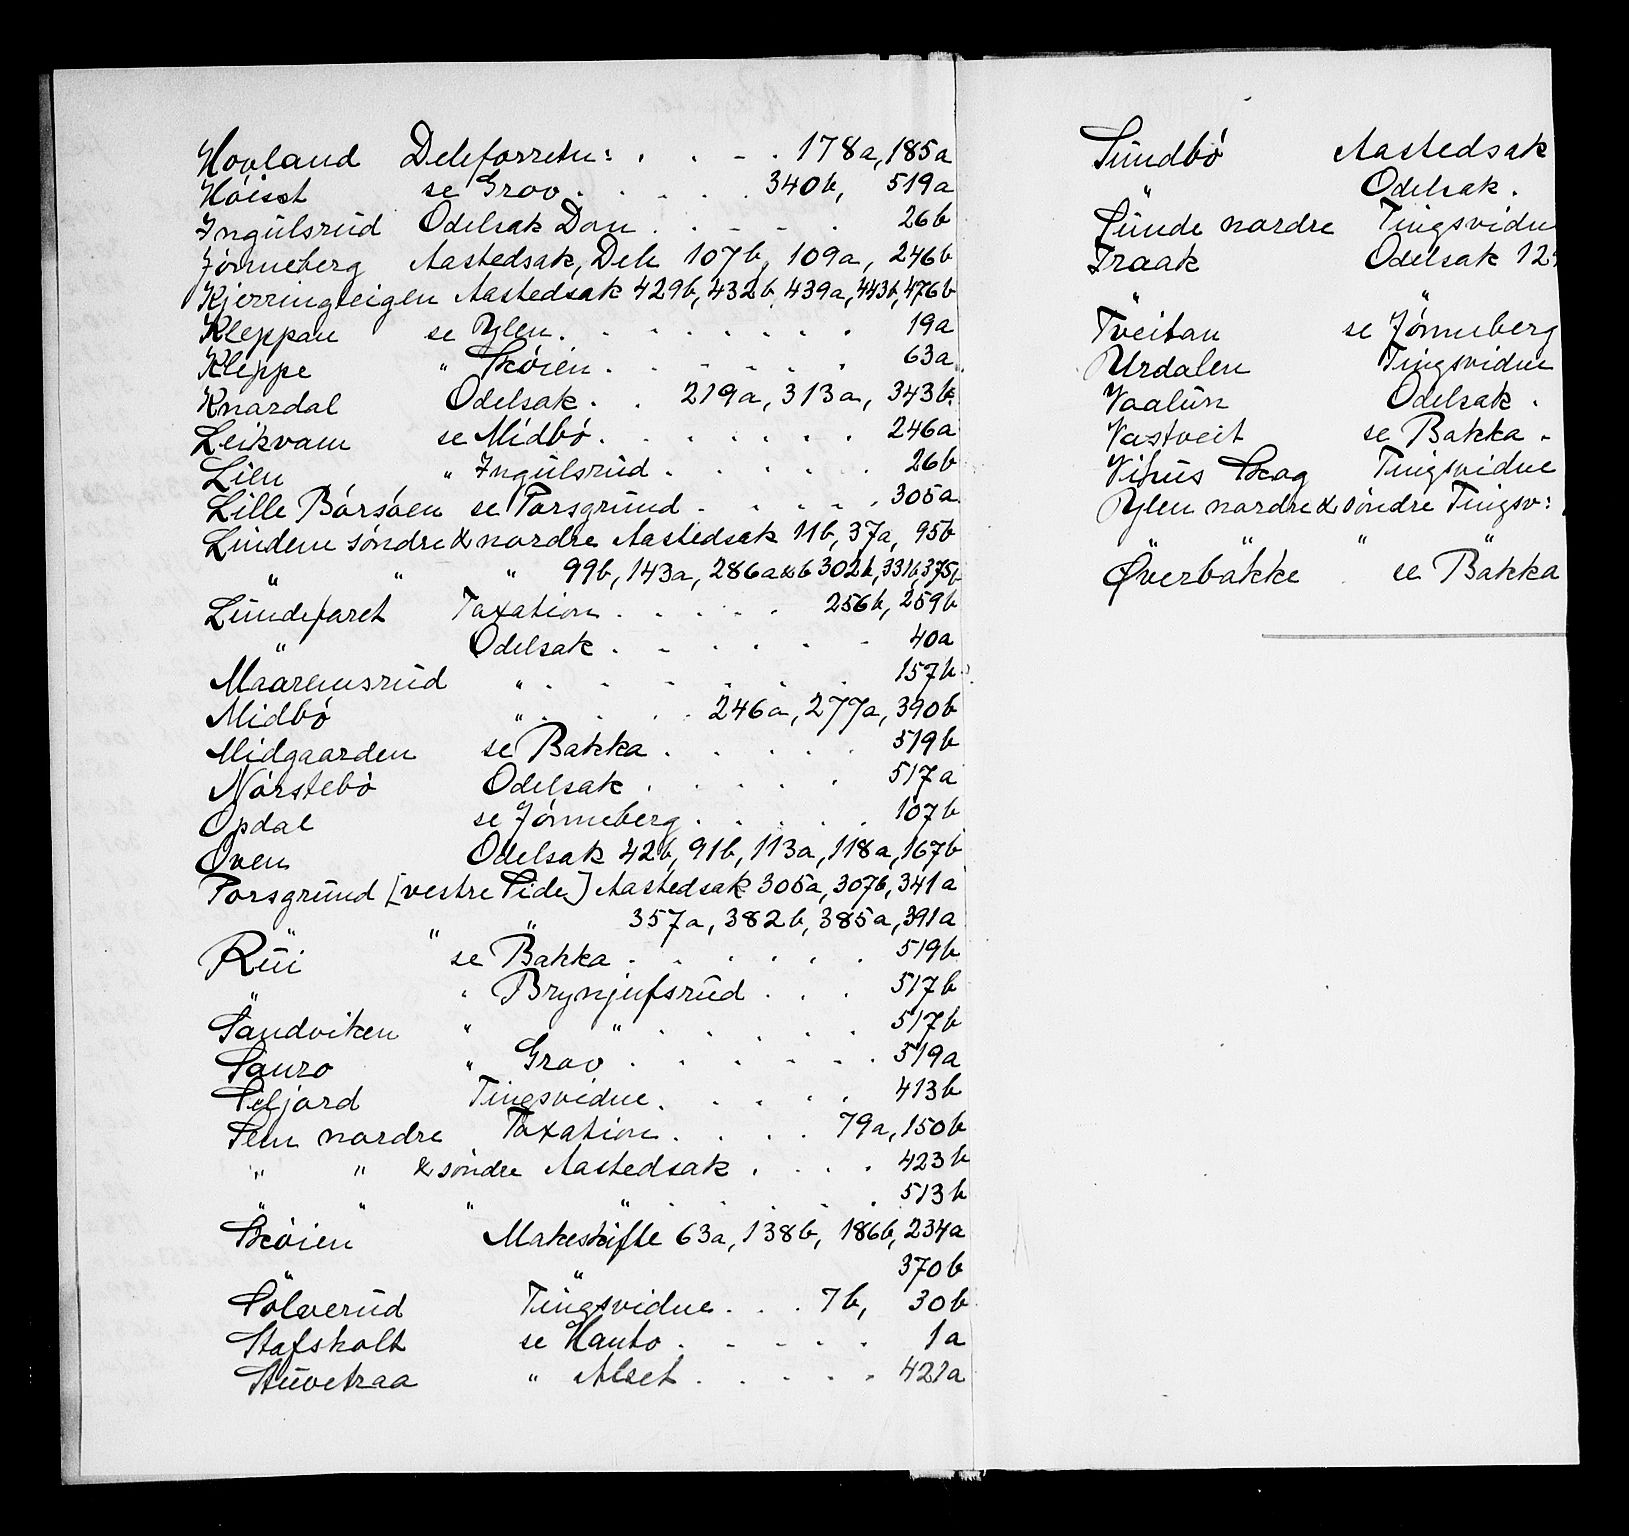 Hovland Deleforretn: . . - . 178a, 185a
Höisst se Grov . . . . . 340b, 519a
Ingulsrud Odelsak Dom . . - - . 26b
Jönneberg Aastedsak, Dele 107b, 109a, 246b
Kjerringteigen Aastedsak 429b, 432b, 439a, 443b, 476b
Kleppan se Ylen . . . . . . . . 19a
Kleppe " Sköien . . . . . . . 63a
Knardal Odelsak . . 219a, 313a, 343b
Leikvam se Midbö . . . . . . . 246a
Lien " Ingulsrud . . . . . . 26b
Lille Börsöen se Porsgrund . . . . . 305a
Lindem söndre & nordre Aastedsak 11b, 37a, 95b
" " " 99b, 143a, 286a&b 302b, 331b, 375b
Lundefaret Taxation . . . . . 256b, 259b
" Odelsak . . . . . . 40a
Maaremsrud " . . . . . . 157b
Midbö " . . . . 246a, 277a, 390b
Midgaarden se Bakka . . . . . 519b
Nörstebö Odelsak . . . . . 517a
Opdal se Jönneberg . . . . . 107b
Oven Odelsak 42b, 91b, 113a, 118a, 167b
Porsgrund [vestre Side] Aastedsak 305a, 307b, 341a
" " " 357a, 382b, 385a, 391a
Rui se Bakka . . . . . . 519b
" " Brynjufsrud . . . 517b
Sandviken " " . . . . . 517b
Sauro " Grov . . . . . . 519a
Seljord Tingsvidne . . . . . 413b
Sem nordre Taxation . . . . 79a, 150b
" " & söndre Aastedsak . . . . 423b
" " " " . . . . 513b
Sköien Makeskifte 63a, 138b, 186b, 234a
" " 370b
Sölverud Tingsvidne . . . 7b, 30b
Stafsholt se Hauto . . . . . 1a
Stuvetraa " Alset . . . . . 421a
Sundbö Aastedsak
" Odelsak .
Sunde nordre Tingsvidn
Traak Odelsak 12
" "
Tveitan se Jönneberg
Urdalen Tingsvidne
Vaalun Odelsak .
Vastveit se Bakka .
Vihus Skog Tingsvidne
Ylen nordre & söndre Tingsv:
" " " "
Överbakke se Bakka